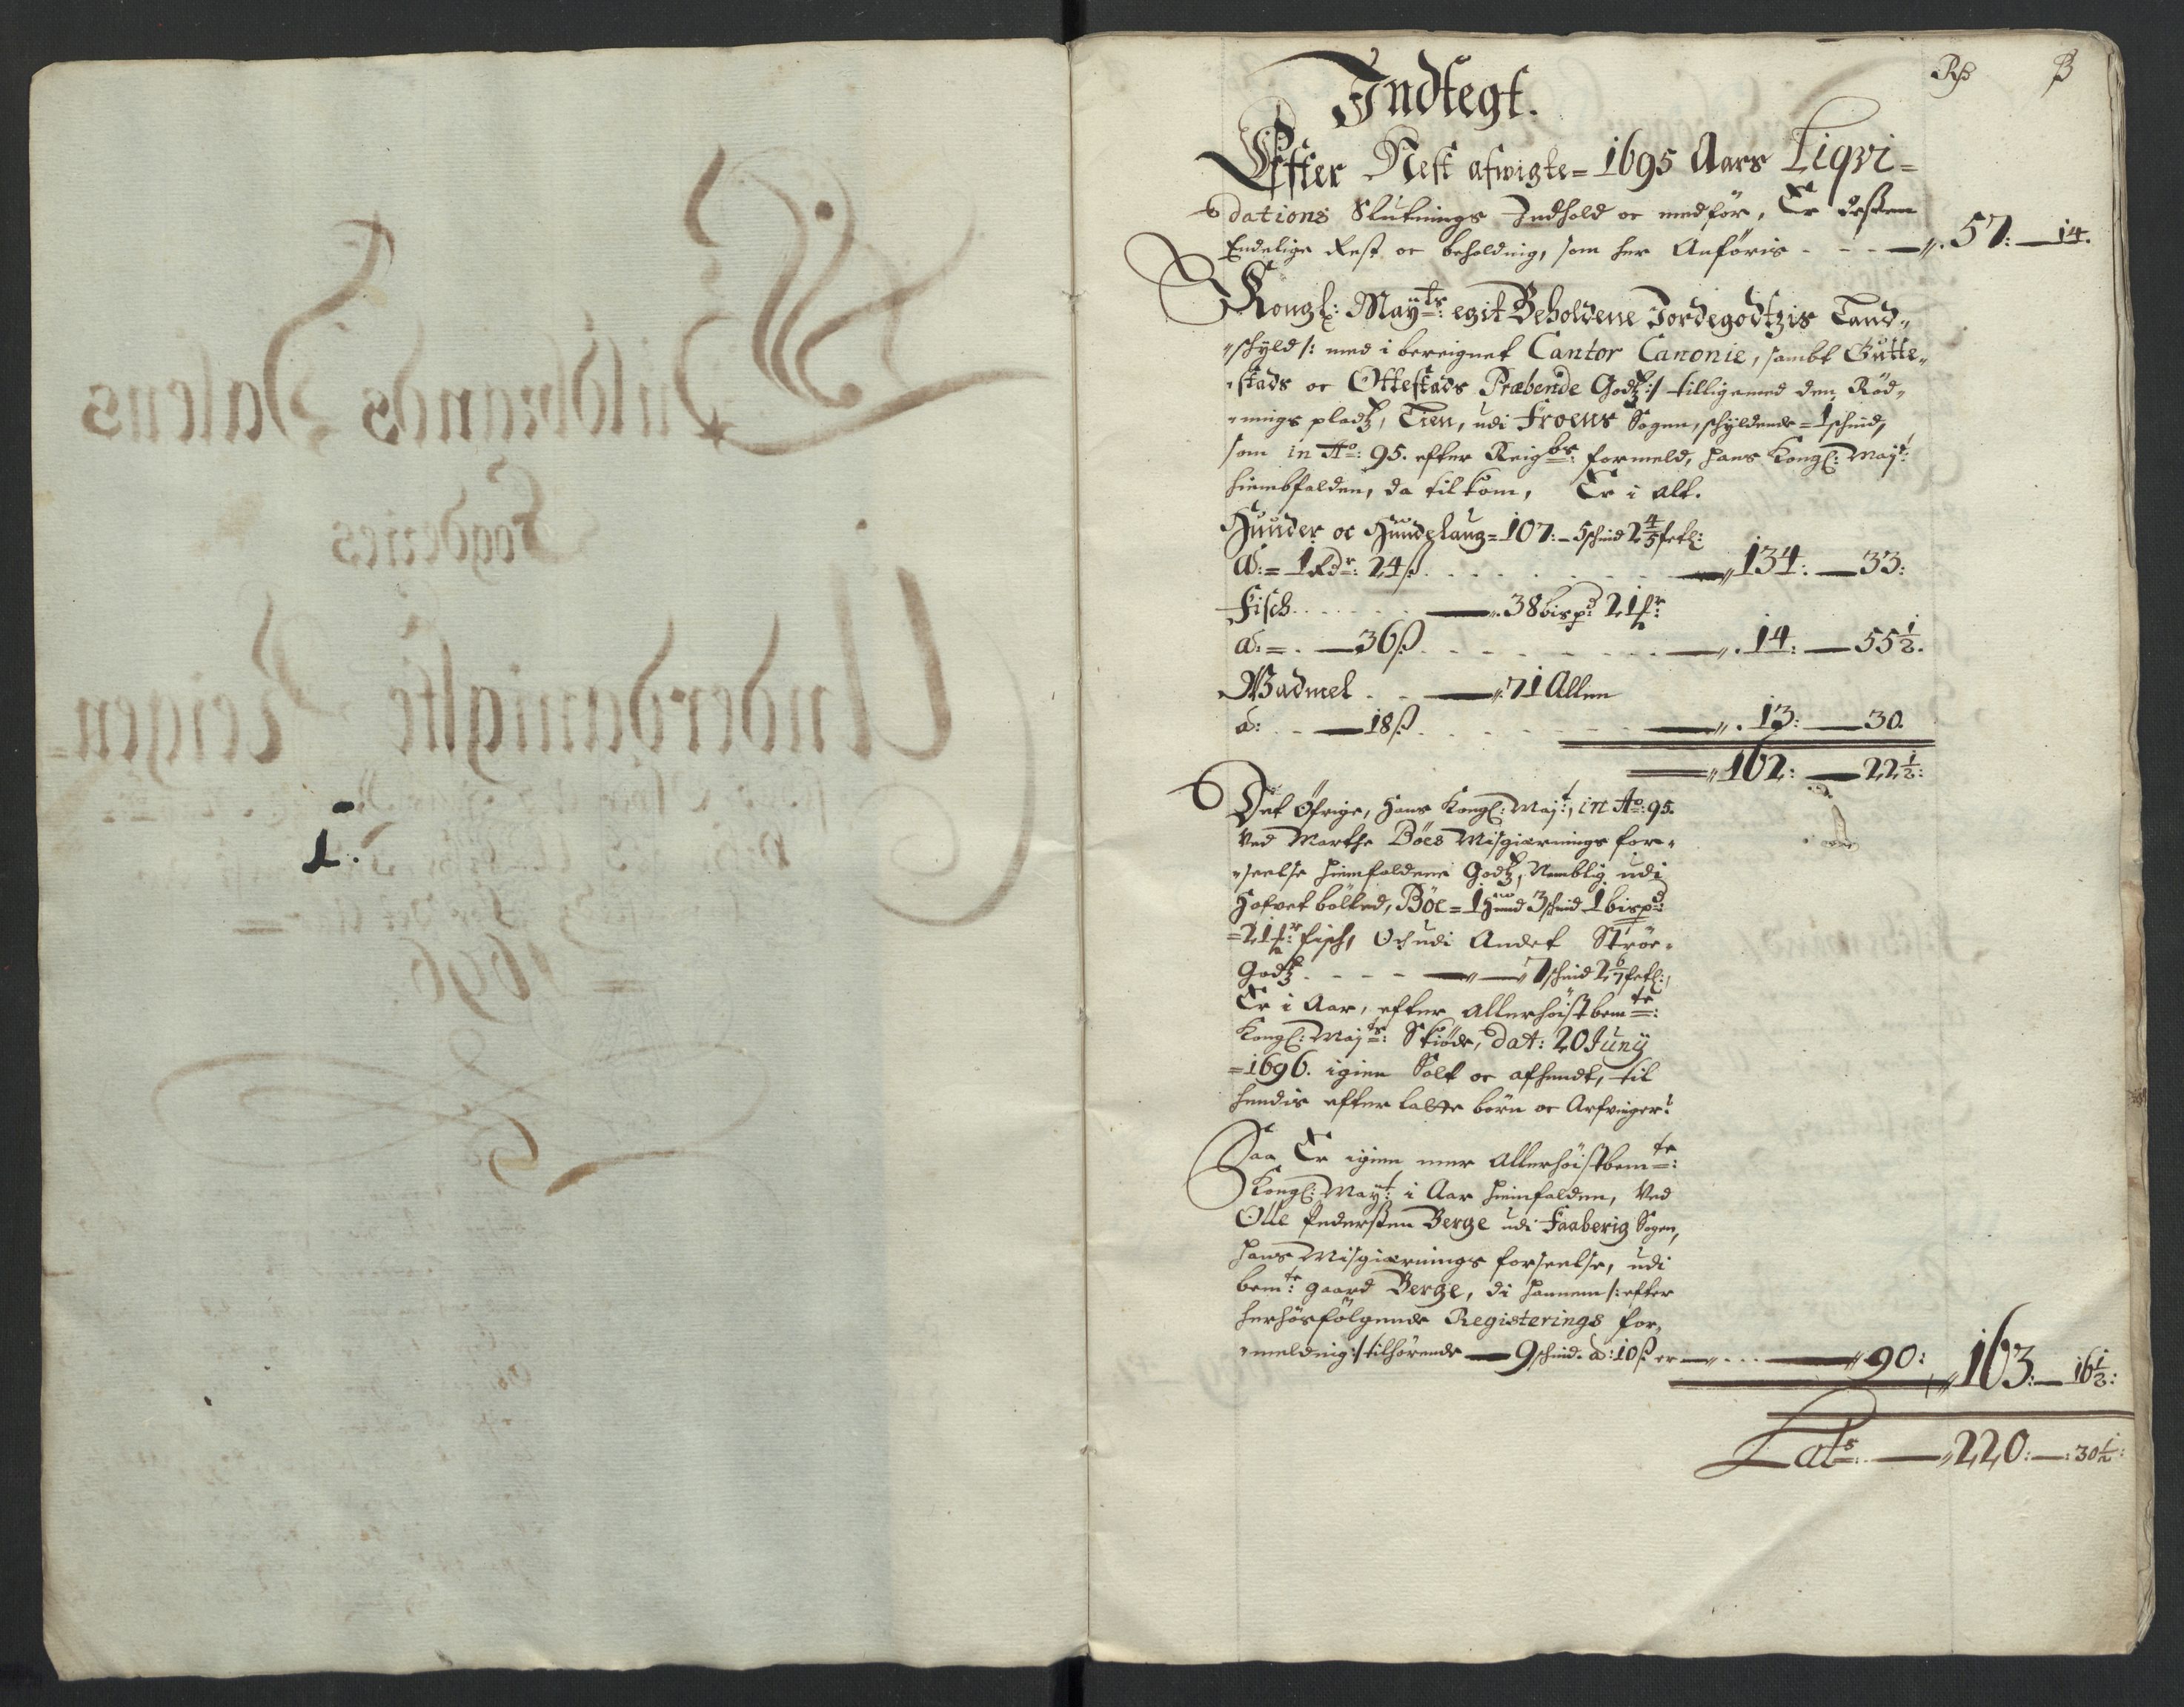 1.
Indtegt.
Rß ß
Effter Nest afwigte= 1695 Aars Liqvi=
dations Slutnings Indhold oc medför, Er desßen
Endelige Rest oc beholdnig, som her Anföris - - - 57: — 14.
Kongl: Mayts: egit Beholdene Jordegodtzis Land„
„schyld /: med i bereignet Cantor Canonie, sambt Gutte„
„stads oc Ottestads Præbende Godtz :/ tilligemed den Röd„
„nings pladtz, Tien, udi Froens Sogen, schyldende = 1 schind,
som in Ao: 95. efter Reigbs: formeld, hans Kongl: Mayt:
hiembfalden, da tilkom, Er i alt.
Huuder oc Hundelaug = 107: — 5 schind 2 4/5 fetl:
a: = 1 Rdr: 24 ß . . . . . 134: — 33:
Fisch . . . . . — 38 bispd: 21 fr:
a: = . — 36 ß . . . . . 14: — 55 1/2.
Wadmel . - — 71 Allen
a: . - — 18 ß . . . . . 13: — 30.
162: — 22 1/2:
Det Öfrige, Hans Kongl: Mayt:, in Ao: 95.
Ved Marthe Böes Misgiernings for„
„seelse hiemfaldene Godtz, Nemblig udi
Hofvet bölled, Böe = 1 hund 3 schind 1 bispd:
= 21 fr: fisch, Och udi Andet Ströe„
Godtz . - - - — 7 schind 2 6/7 fetl:,
Er i Aar, efter allerhöistbemte:
Kongl: Mayts: Skiöde, dat: 20 Juny
= 1696. igien Solt oc afhendt, til
hendis efterlatte börn oc Arfvinger:
Saa Er igien mer Allerhöistbemte:
Kongl: Mayt: i Aar hiemfalden, Ved
Olle Pedersßen Berge udi Faaberig Sogen,
hans Misgiernings forseelse, udi
bemte: gaard Berge, di hannem /: efter
herhösfölgende Registerings for„
„meldnig :/ tilhörende — 9 schind. a: 10 ß er — . . . — 90: 163: — 16 1/2:
Lats: — 220: — 30 1/2: